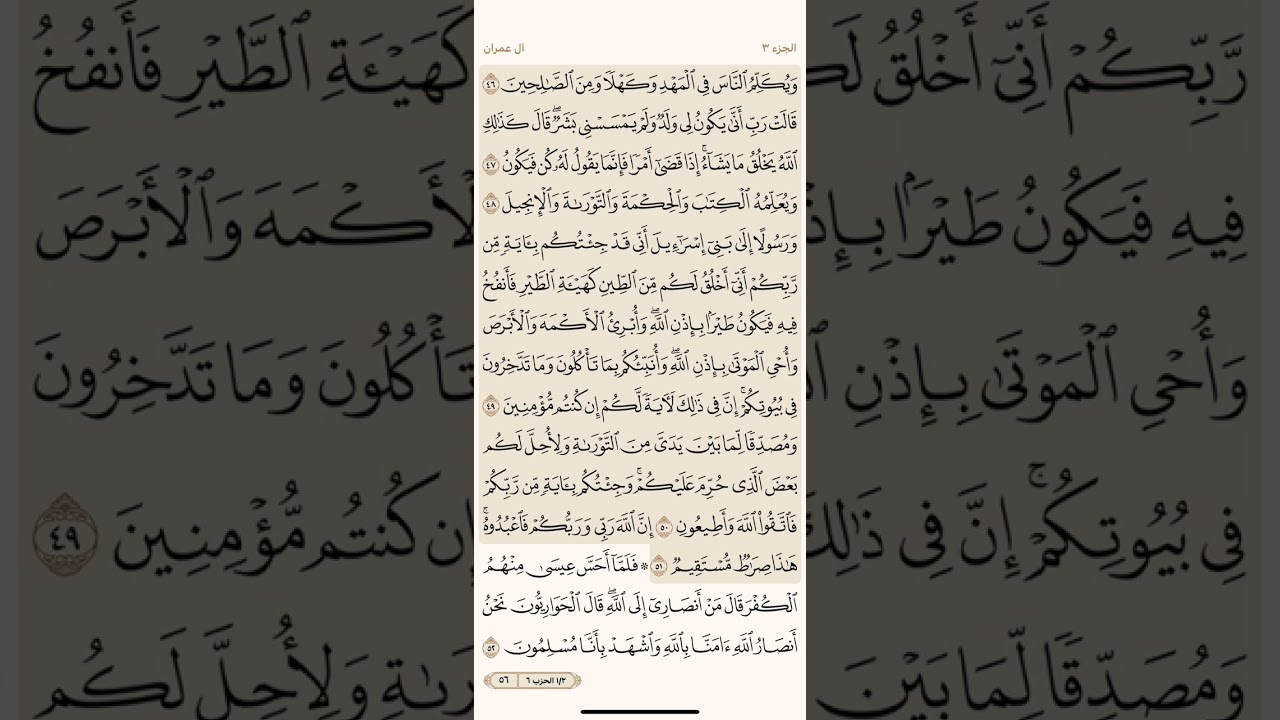 الجزء ٣
آل عمران
وَيُكَلِّمُ ٱلنَّاسَ فِي ٱلۡمَهۡدِ وَكَهۡلٗا وَمِنَ ٱلصَّٰلِحِينَ ٤٦
قَالَتۡ رَبِّ أَنَّىٰ يَكُونُ لِي وَلَدٞ وَلَمۡ يَمۡسَسۡنِي بَشَرٞۖ قَالَ كَذَٰلِكِ
ٱللَّهُ يَخۡلُقُ مَا يَشَآءُۚ إِذَا قَضَىٰٓ أَمۡرٗا فَإِنَّمَا يَقُولُ لَهُۥ كُن فَيَكُونُ ٤٧
وَيُعَلِّمُهُ ٱلۡكِتَٰبَ وَٱلۡحِكۡمَةَ وَٱلتَّوۡرَىٰةَ وَٱلۡإِنجِيلَ ٤٨
وَرَسُولًا إِلَىٰ بَنِيٓ إِسۡرَٰٓءِيلَ أَنِّي قَدۡ جِئۡتُكُم بِـَٔايَةٖ مِّن
رَّبِّكُمۡ أَنِّيٓ أَخۡلُقُ لَكُم مِّنَ ٱلطِّينِ كَهَيۡـَٔةِ ٱلطَّيۡرِ فَأَنفُخُ
فِيهِ فَيَكُونُ طَيۡرَۢا بِإِذۡنِ ٱللَّهِۖ وَأُبۡرِئُ ٱلۡأَكۡمَهَ وَٱلۡأَبۡرَصَ
وَأُحۡيِ ٱلۡمَوۡتَىٰ بِإِذۡنِ ٱللَّهِۖ وَأُنَبِّئُكُم بِمَا تَأۡكُلُونَ وَمَا تَدَّخِرُونَ
فِي بُيُوتِكُمۡۚ إِنَّ فِي ذَٰلِكَ لَأٓيَةٗ لَّكُمۡ إِن كُنتُم مُّؤۡمِنِينَ ٤٩
وَمُصَدِّقٗا لِّمَا بَيۡنَ يَدَيَّ مِنَ ٱلتَّوۡرَىٰةِ وَلِأُحِلَّ لَكُم
بَعۡضَ ٱلَّذِي حُرِّمَ عَلَيۡكُمۡۚ وَجِئۡتُكُم بِـَٔايَةٖ مِّن رَّبِّكُمۡ
فَٱتَّقُواْ ٱللَّهَ وَأَطِيعُونِ ٥٠ إِنَّ ٱللَّهَ رَبِّي وَرَبُّكُمۡ فَٱعۡبُدُوهُۚ
هَٰذَا صِرَٰطٞ مُّسۡتَقِيمٞ ٥١ ۞ فَلَمَّآ أَحَسَّ عِيسَىٰ مِنۡهُمُ
ٱلۡكُفۡرَ قَالَ مَنۡ أَنصَارِيٓ إِلَى ٱللَّهِۖ قَالَ ٱلۡحَوَارِيُّونَ نَحۡنُ
أَنصَارُ ٱللَّهِ ءَامَنَّا بِٱللَّهِ وَٱشۡهَدۡ بِأَنَّا مُسۡلِمُونَ ٥٢
١/٢ الحزب ٦
٥٦